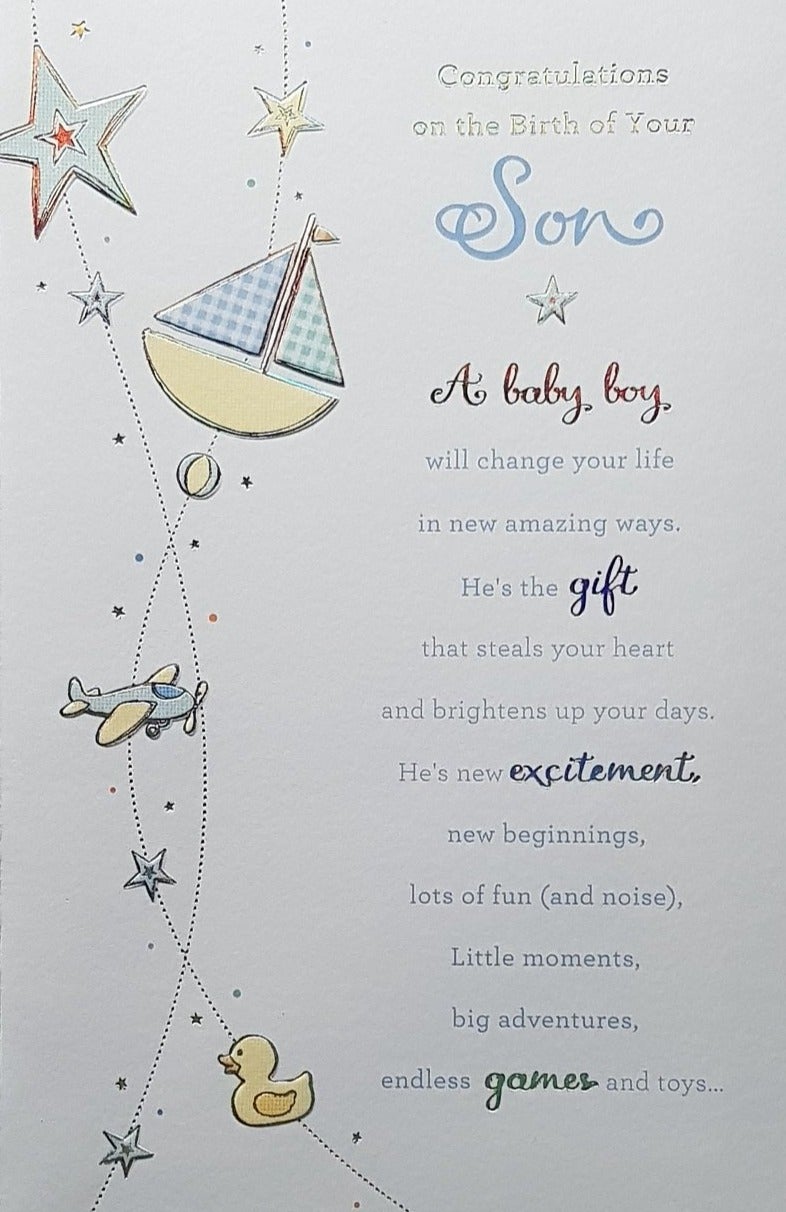 Congratulations
on the Birth of Your
Son
A baby boy
will change your life
in new amazing ways.
He's the gift
that steals your heart
and brightens up your days.
He's new excitement,
new beginnings,
lots of fun (and noise),
Little moments,
big adventures,
endless games and toys...